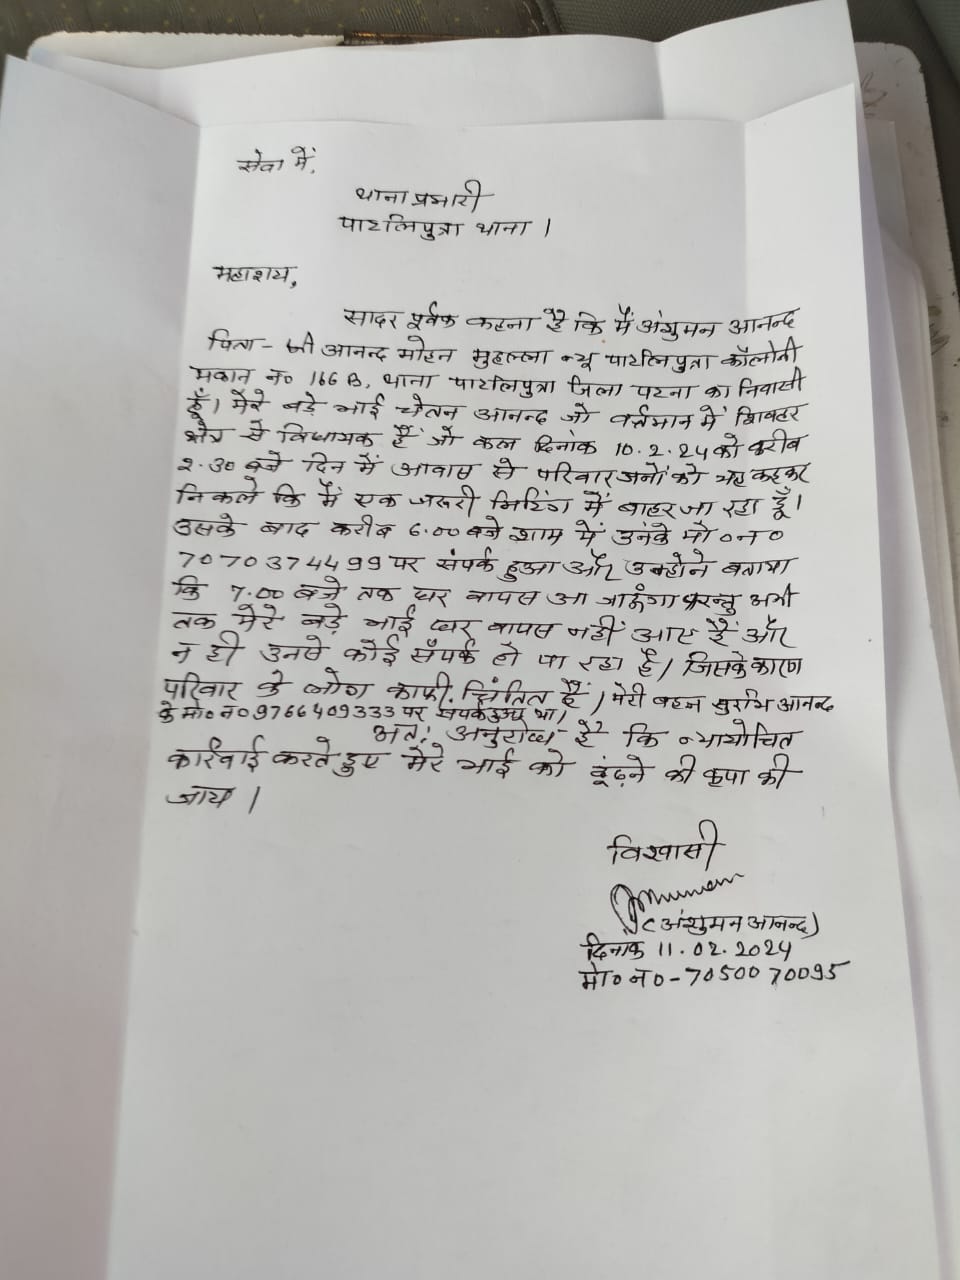 सेवा में,
थाना प्रभारी
पाटलिपुत्रा थाना ।
महाशय,
सादर पूर्वक कहना है कि मैं अंशुमन आनन्द
पिता - श्री आनन्द मोहन मुहल्ला न्यू पाटलिपुत्रा कॉलोनी
मकान न० 166 B, थाना पाटलिपुत्रा जिला पटना का निवासी
हूँ। मेरे बड़े भाई चेतन आनन्द जो वर्त्तमान में शिवहर
क्षेत्र से विधायक हैं जो कल दिनांक 10.2.24 को करीब
2.30 बजे दिन में आवास से परिवार जनों को यह कहकर
निकले कि मैं एक जरूरी मिटिंग में बाहर जा रहा हूँ।
उसके बाद करीब 6.00 बजे शाम में उनके मो० न०
7070374499 पर संपर्क हुआ और उन्होने बताया
कि 7.00 बजे तक घर वापस आ जाऊंगा परन्तु अभी
तक मेरे बड़े भाई घर वापस नहीं आए हैं और
न ही उनसे कोई सँपर्क हो पा रहा है। जिसके कारण
परिवार के लोग काफी चिंतित हैं। मेरी बहन सुरभि आनन्द
के मो० न० 9766409333 पर संपर्क हुआ था।
अतः अनुरोध है कि न्यायोचित
कार्रवाई करते हुए मेरे भाई को ढूंढ़ने की कृपा की
जाय ।
विश्वासी
(अंशुमन आनन्द)
दिनांक 11.02.2024
मो० न० - 7050070095